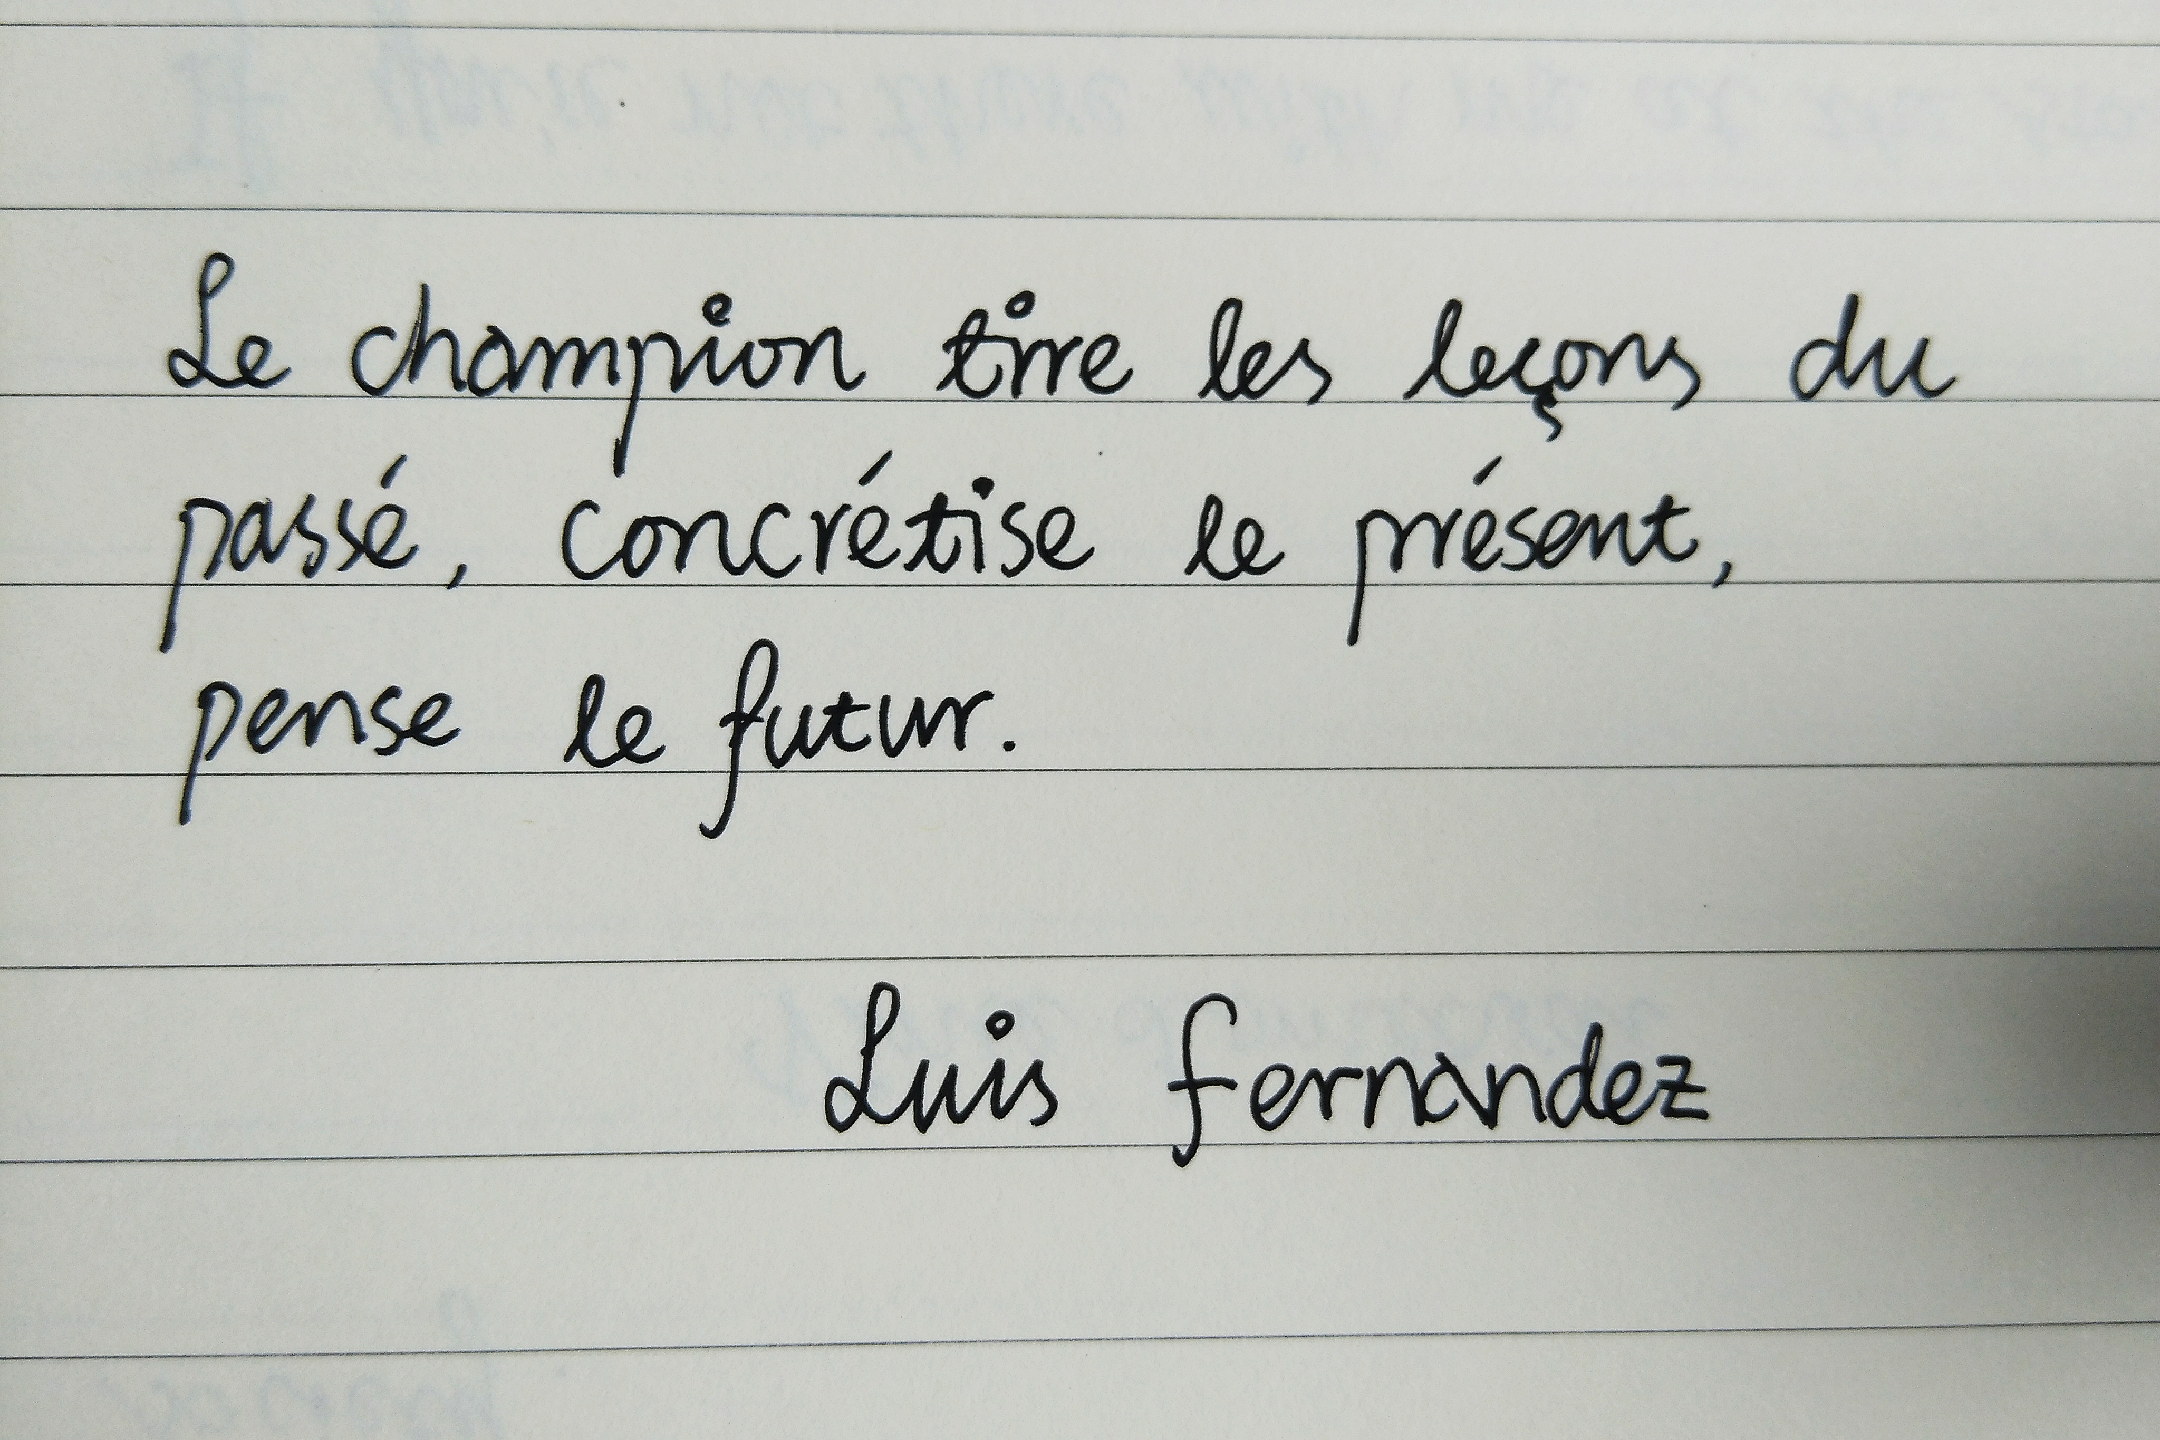 Le champion tire les leçons du
passé, concrétise le présent,
pense le futur.
Luis Fernandez